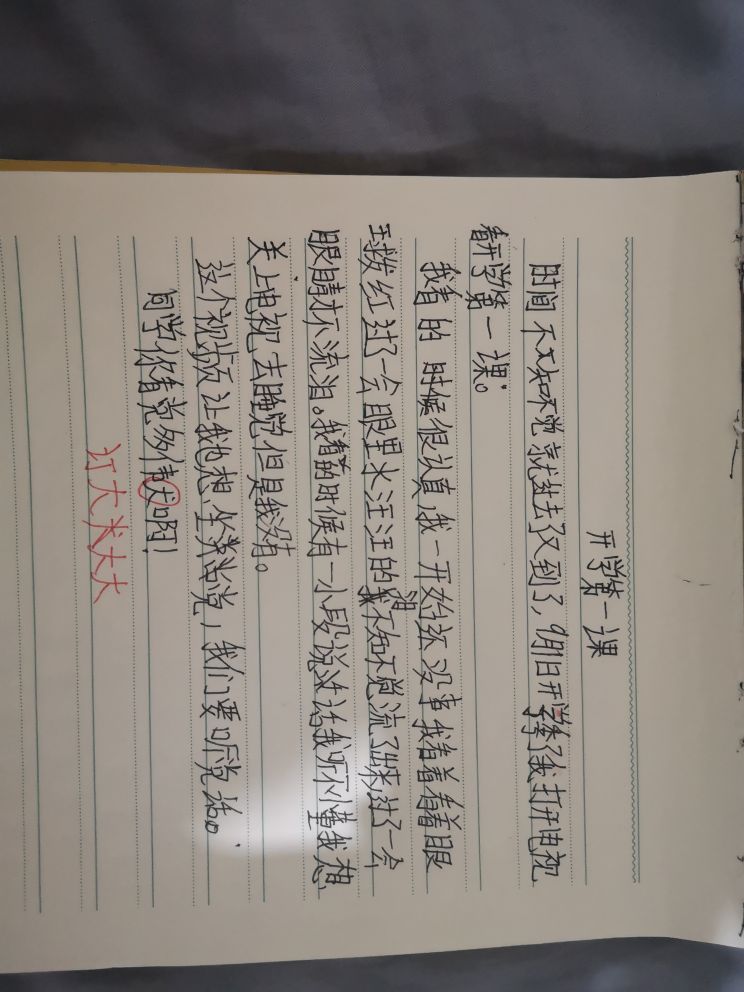 开学第一课
时间不知不觉就过去了又到了，9月1日开学季了我打开电视
看开学第一课。
我看的时候很认真，我一开始还没事我看着看着眼
球发红过了一会眼里水汪汪的我不知不觉流了泪来过了一会
眼睛才不流泪。我看着的时候有一小段说法让我听不懂我想
关上电视去睡觉但是我没有。
这个视频让我也想坐当党，我们要听党话。
同学你看党多伟大啊！
大大